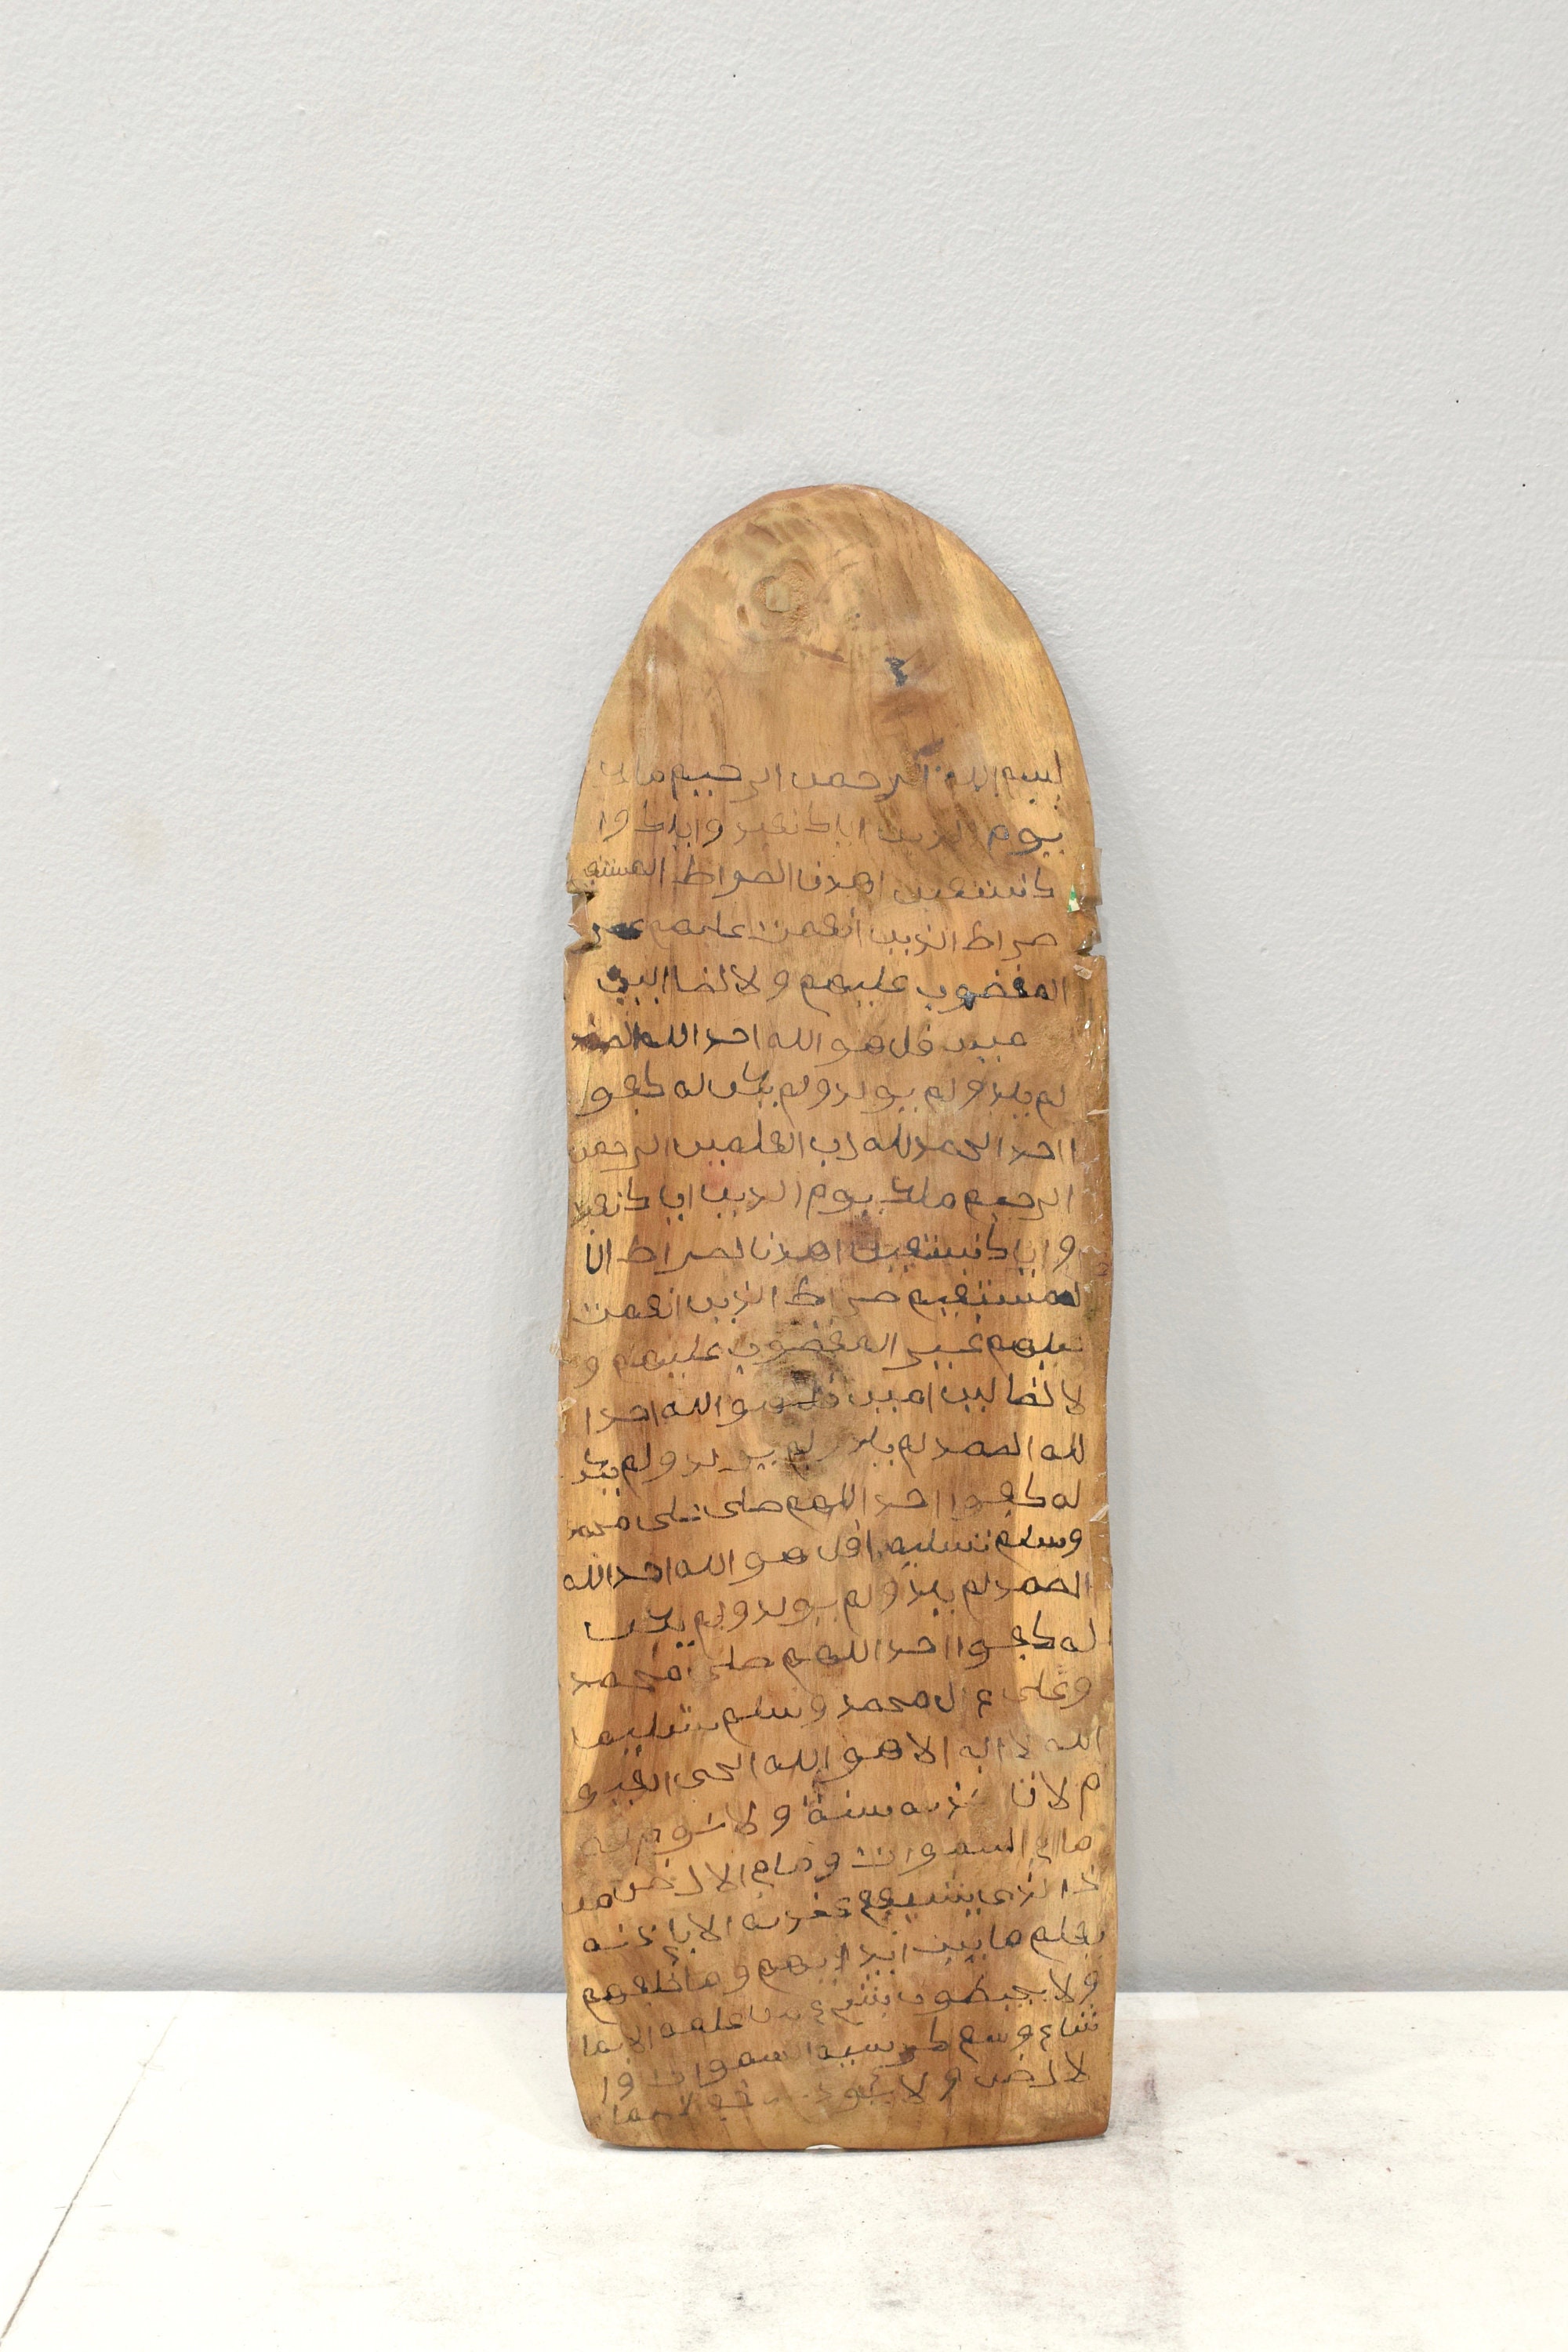 بسم الله الرحمن الرحيم ملك
يوم الدين اياك نعبد واياك وا
كنستعين اهدنا الصواط المستقي
صراط الذين أنعمت عليهم غير
المغضوب عليهم ولالضاالين
مين قل هو الله احد الله الصمد
لم يلد ولم يولد ولم يكن له كفو
ااحد الحمد لله رب العلمين الرحمن
الرحيم ملك يوم الدين اياك نعبد
واياك نستعين اهدنا لصراط ال
لمستقيم صراط الذين انعمت
عليهم غيير المغضوب عليهم و
لالضالين امين قل هو الله احد ا
لله الصمد لم يلد ولم يولد ولم يكن
له كفوا احد اللهم صلى على محمد
وسلم تسليما قل هو الله احد الله
الصمد لم يلد ولم يولد ولم يكن
له كفوا احد اللهم صلى محمد
وعلى ءال محمد وسلم تسليما
الله لا اله الا هو الله الحى القيو
م لا تا خذه سنة ولا نوم له
ما في السموات وما في الارض من
ذا الذى يشفع عنده الا بإذنه
يعلم ما بين ايديهم وما خلفهم
ولا يحيطون بشيء من علمه الا بما
شاء وسع كرسيه السموات وا
لارض ولا يئوده حفظهما